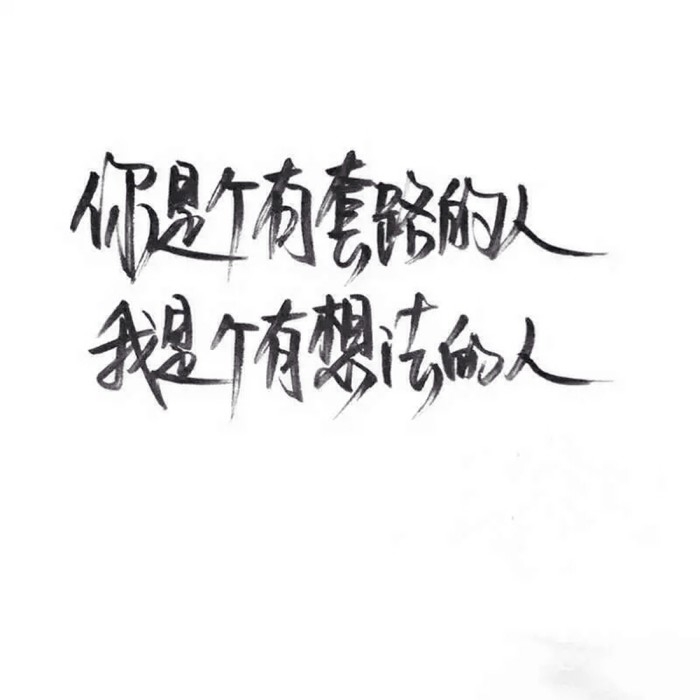 你是个有套路的人
我是个有想法的人